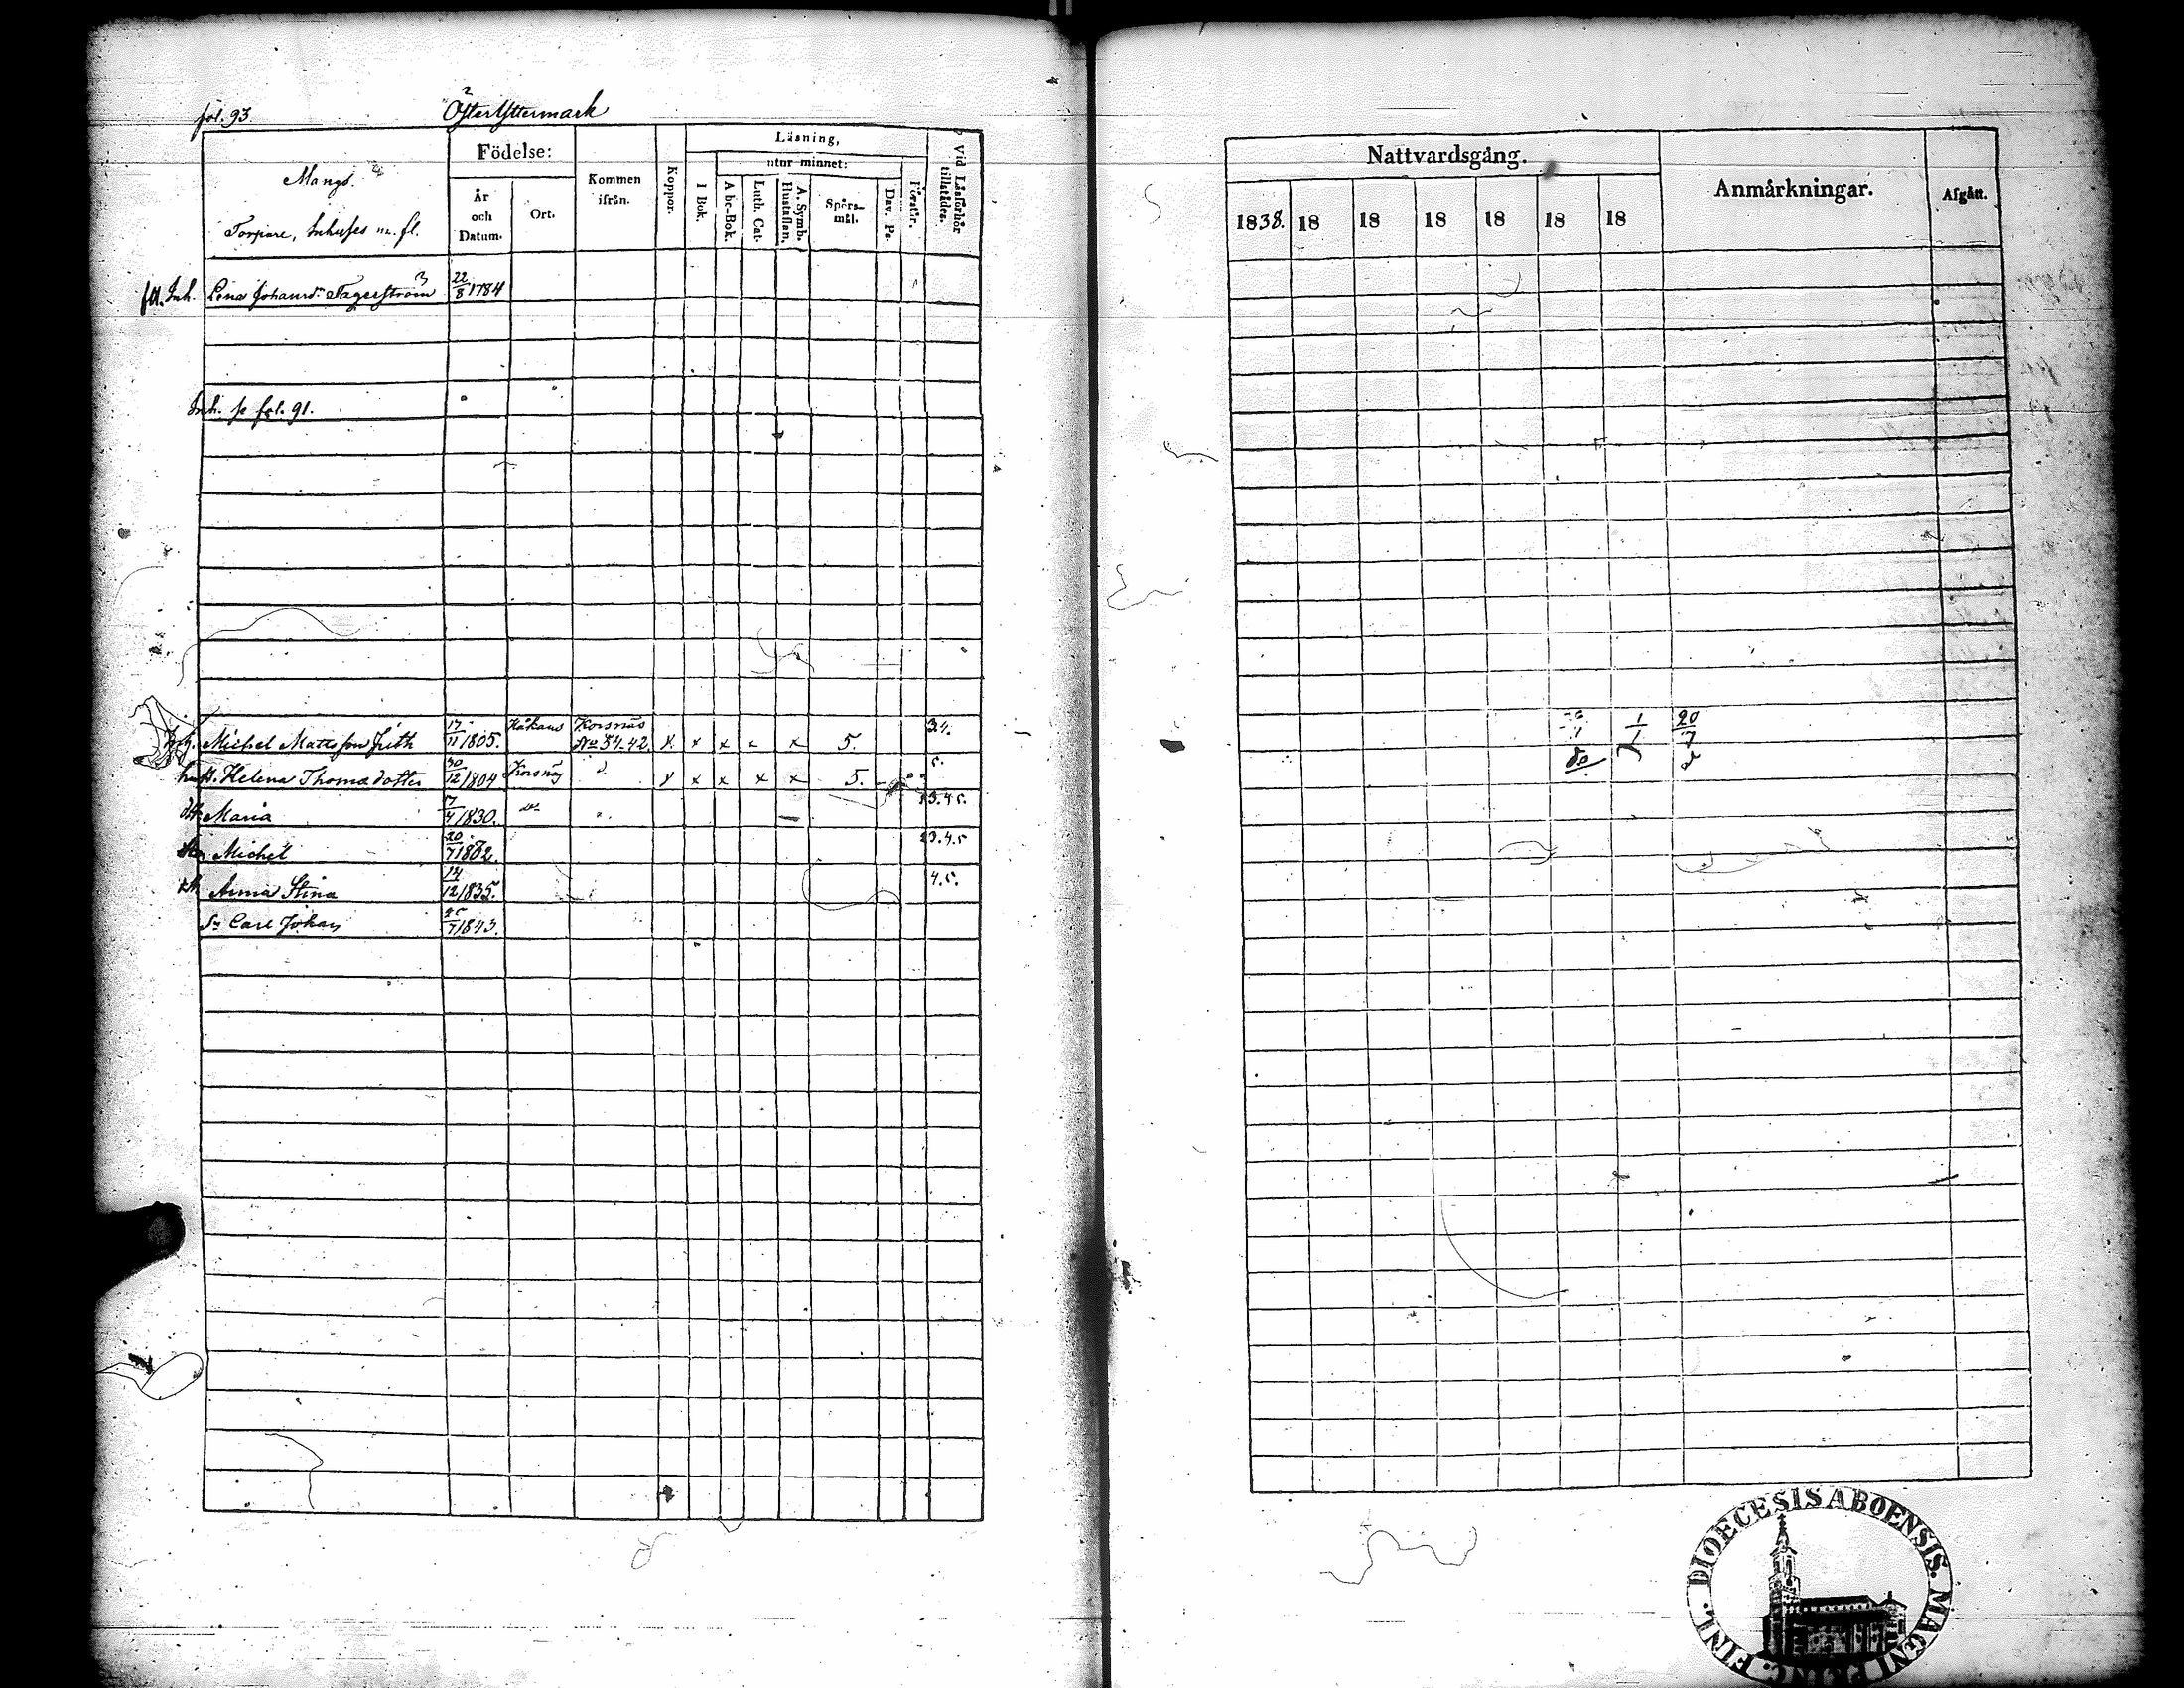 fol. 93.
Öfter Yttermark
Mangs.
Torpare, Inhyses m. fl.
Födelse:
År och Datum.
Ort.
Kommen ifrån.
Koppor.
Läsning,
utur minnet:
I Bok.
Abc-Bok.
Luth. Cat.
A. Symb. Hustaflan.
Spörsmål.
Dav. Ps.
Förstår.
Vid Läsförhör tillstädes.
Nattvardsgång.
1838. 18 18 18 18 18 18
Anmårkningar.
Afgått.
Inh. Lena Johansdr Fagerström 22/8 1784
Inh. se fol. 91.
Michel Mattsson Frith 17/11 1805. Håkans Korsnäs No 34.42. x x x x x 5. 3.4. 1/1 20/7
h. Helena Thomasdotter 30/12 1804 Korsnäs d. x x x x x 5. 5. do d
dtr Maria 7/4 1830. do 3.4.5.
Michel 20/7 1832. 23.4.5
Anna Stina 14/12 1835. 4.5.
Sn Carl Johan 7 1843.
DIOECESIS ABOENSIS. MAGNI PRINC. FINL.